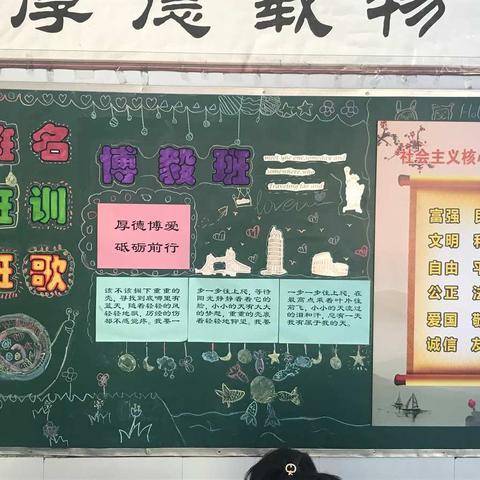 厚德载物
班名
班训
班歌
博毅班
meet me one someday and
somewhere we
Traveling far and
厚德博爱
砥砺前行
该不该搁下重重的
壳，寻找到底哪里有
蓝天，随着轻轻的风
轻轻地飘，历经的伤
都不感觉疼。我要一
步一步往上爬，等待
阳光静静看着它的
脸，小小的天有大大
的梦想，重重的壳裹
着轻轻地仰望。我要
一步一步往上爬，在
最高点乘着叶片往
前飞，小小的天流过
的泪和汗，总有一天
我有属于我的天。
社会主义核心
富强 民
文明 和
自由 平
公正 法
爱国 敬
诚信 友